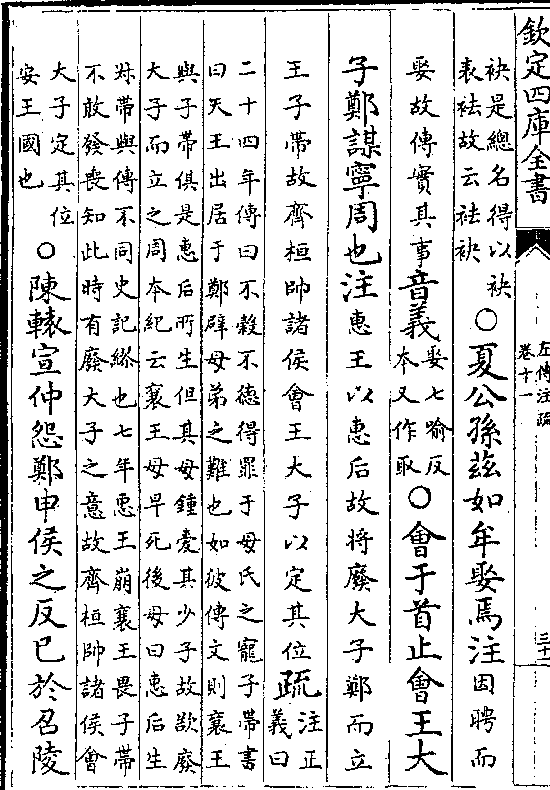 欽定四庫全書
左傳注疏
卷十一
三十一
袂是總名得以袂
表袪故云袪袂
○夏公孫茲如牟娶焉注因聘而
娶故傳實其事音義娶七喻反
本又作取
○會于首止會王大
子鄭謀寧周也注惠王以惠后故將廢大子鄭而立
王子帶故齊桓帥諸侯會王大子以定其位疏注正
義曰
二十四年傳曰不穀不德得罪于母氏之寵子帶書
曰天王出居于鄭辟母弟之難也如彼傳文則襄王
與子帶俱是惠后所生但其母鍾愛其少子故欲廢
大子而立之周本紀云襄王母早死後母曰惠后生
叔帶與傳不同史記繆也七年惠王崩襄王畏子帶
不敢發喪知此時有廢大子之意故齊桓帥諸侯會
大子定其位
安王國也
○陳轅宣仲怨鄭申侯之反已於召陵